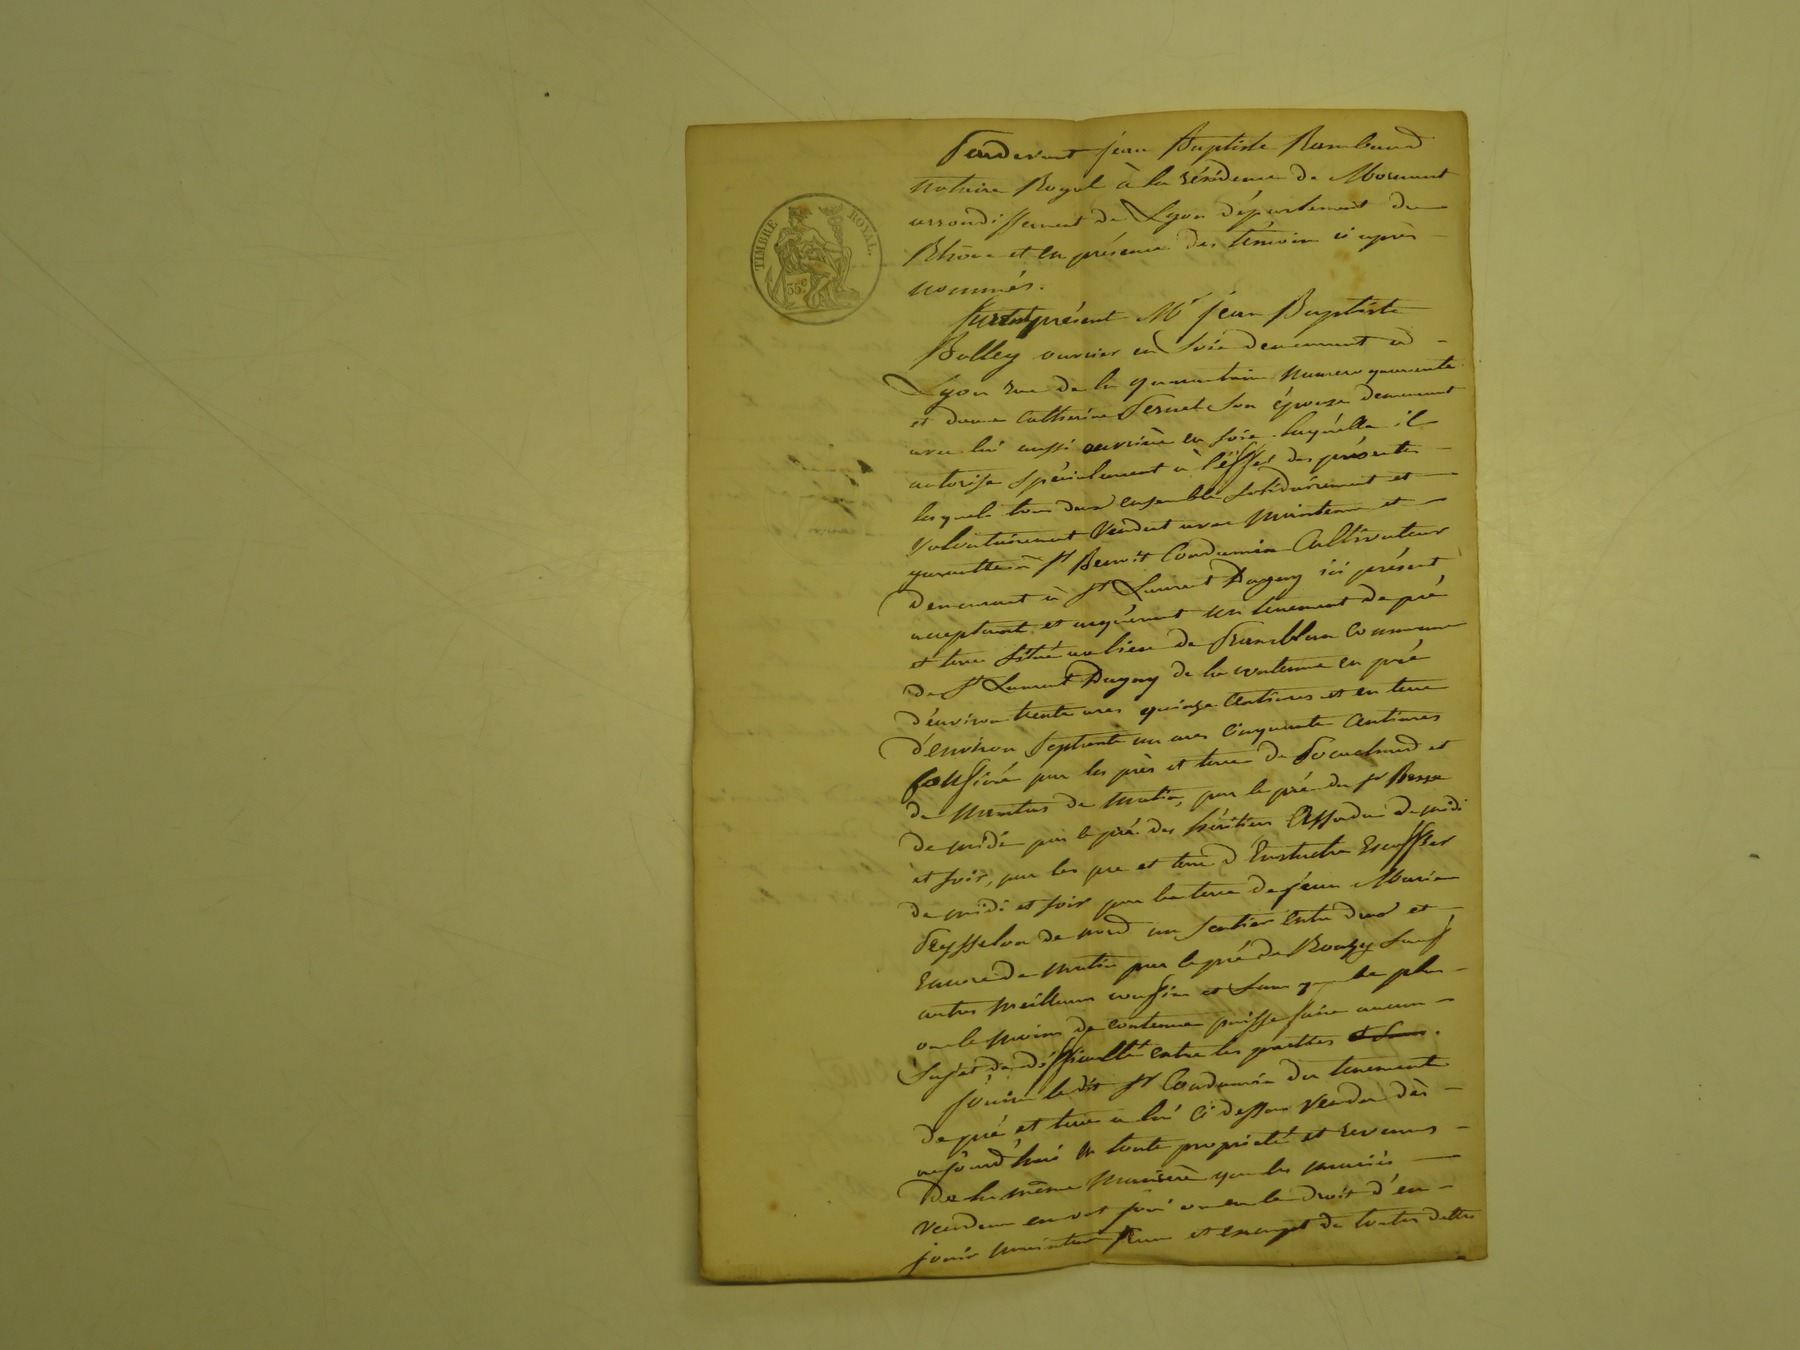 TIMBRE ROYAL.
35c
Pardevant jean Baptiste Rambaud
notaire Royal à la résidence de Mornant
arrondissement de Lyon département du
Rhône et en présence des témoins ci après
nommés.
présent Mr jean Baptiste
Bolley ouvrier en soie demeurant a
Lyon rue de la quarantaine numero quarante
et dame Catherine son épouse demeurant
avec lui aussi ouvrière en soie laquelle il
autorise spécialement à l'effet des présentes
lesquels tous deux ensemble solidairement et
volontairement vendent avec maintenue et
garantie à Sr Benoit Condamin Cultivateur
demeurant à St Laurent Dagny ici présent
acceptant et acquérant un tenement de pré
et terre situé au lieu de commune
de St Laurent Dagny de la contenue en pré
d'environ trente ares quinze Centiares et en terre
d'environ septante un ares cinquante Centiares
Confiné par les prés et terre de et
de de matin, par le pré du Sr
de midi par le pré des héritiers de midi
et soir, par les pre et terre d'Eustache
de midi et soir par la terre de jean Marie
Peysselon de nord un sentier entre deux et
encore de matin par le pré de sauf
autres meilleurs confins et sans que le plus
ou le moins de contenue puisse faire aucun
sujet de difficulté entre les parties et sans.
jouira ledit Sr Condamin du tenement
de pré et terre a lui ci dessus vendu dès
aujourd'hui en toute propriété et revenus
de la même manière que les mariés
vendeurs en ont joui ou eu le droit d'en
jouir et exempt de toutes dettes